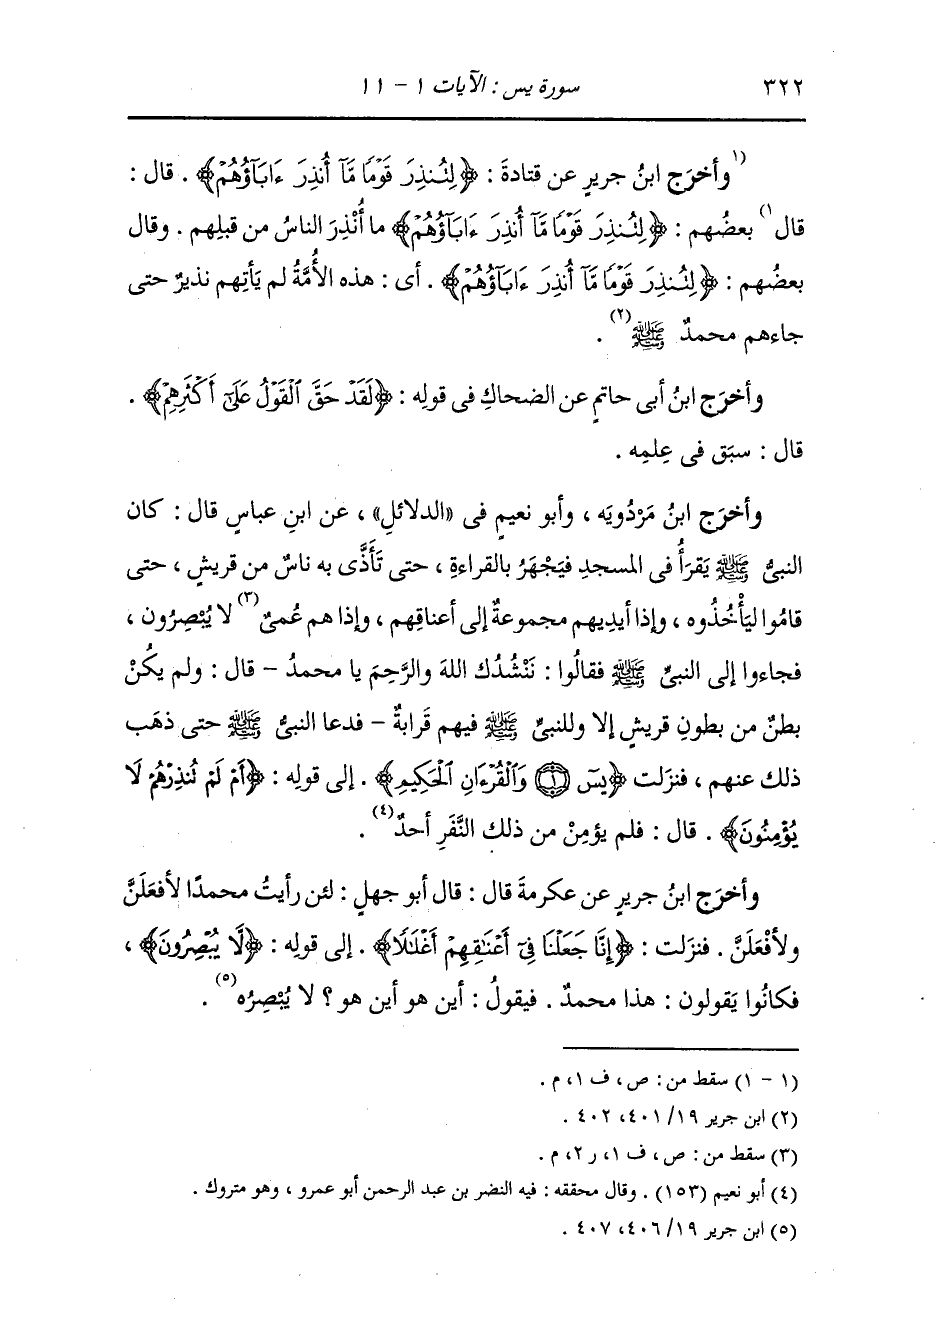 ٣٢٢ سورة يس : الآيات ١ - ١١
(١وأخرَج ابنُ جريرٍ عن قتادةَ : ﴿لِتُنذِرَ قَوْمًا مَّآ أُنذِرَ ءَابَآؤُهُمْ﴾ . قال :
قال١) بعضُهم : ﴿لِتُنذِرَ قَوْمًا مَّآ أُنذِرَ ءَابَآؤُهُمْ﴾ ما أُنْذِرَ الناسُ من قبلِهم . وقال
بعضُهم : ﴿لِتُنذِرَ قَوْمًا مَّآ أُنذِرَ ءَابَآؤُهُمْ﴾ . أى : هذه الأُمَّةُ لم يَأتِهم نذيرٌ حتى
جاءهم محمدٌ ﷺ(٢) .
وأخرَج ابنُ أبى حاتمٍ عن الضحاكِ فى قولِه : ﴿لَقَدْ حَقَّ ٱلْقَوْلُ عَلَىٰٓ أَكْثَرِهِمْ﴾ .
قال : سبَق فى عِلمِه .
وأخرَج ابنُ مَرْدُويَه ، وأبو نعيمٍ فى «الدلائلِ» ، عن ابنِ عباسٍ قال : كان
النبىُّ ﷺ يَقرَأُ فى المسجدِ فيَجْهَرُ بالقراءةِ ، حتى تَأَذَّى به ناسٌ من قريشٍ ، حتى
قامُوا ليَأْخُذُوه ، وإذا أيدِيهم مجموعةٌ إلى أعناقِهم ، وإذا هم عُمىٌ(٣) لا يُبْصِرُون ،
فجاءوا إلى النبىِّ ﷺ فقالُوا : نَنْشُدُك اللهَ والرَّحِمَ يا محمدُ - قال : ولم يكُنْ
بطنٌ من بطونِ قريشٍ إلا وللنبىِّ ﷺ فيهم قَرابةٌ - فدعا النبىُّ ﷺ حتى ذهَب
ذلك عنهم ، فنزَلت ﴿يسٓ ۝١ وَٱلْقُرْءَانِ ٱلْحَكِيمِ﴾ . إلى قولِه : ﴿أَمْ لَمْ تُنذِرْهُمْ لَا
يُؤْمِنُونَ﴾ . قال : فلم يؤمِنْ من ذلك النَّفَرِ أحدٌ(٤) .
وأخرَج ابنُ جريرٍ عن عكرمةَ قال : قال أبو جهلٍ : لئن رأيتُ محمدًا لأفعَلَنَّ
ولأفْعَلَنَّ . فنزَلت : ﴿إِنَّا جَعَلْنَا فِىٓ أَعْنَٰقِهِمْ أَغْلَٰلًا﴾ . إلى قولِه : ﴿لَا يُبْصِرُونَ﴾ ،
فكانُوا يَقولون : هذا محمدٌ . فيقولُ : أين هو أين هو ؟ لا يُبْصِرُه(٥) .
(١ - ١) سقط من : ص ، ف ١، م .
(٢) ابن جرير ١٩/ ٤٠١، ٤٠٢ .
(٣) سقط من : ص ، ف ١، ر ٢، م .
(٤) أبو نعيم (١٥٣) . وقال محققه : فيه النضر بن عبد الرحمن أبو عمرو ، وهو متروك .
(٥) ابن جرير ١٩/ ٤٠٦، ٤٠٧ .